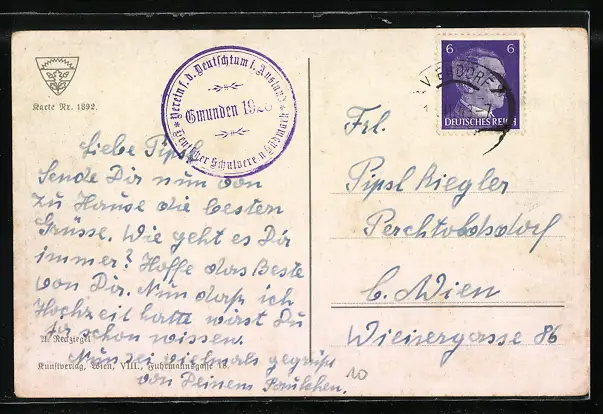 Karte Nr. 1892.
Verein f. d. Deutschtum i. Ausland
Gmunden 1928
Deutscher Schulverein Südmark
6 6
DEUTSCHES REICH
Liebe Pipsl
Sende Dir nun von
zu Hause die besten
Grüsse. Wie geht es Dir
immer? Hoffe das Beste
von Dir. Nun daß ich
Hochzeit hatte wirst Du
ja schon wissen.
Nun sei vielmals gegrüßt
von Deinem
A. Redziegel
Kunstverlag, Wien, VIII., Fuhrmannsgasse 18.
Frl.
Pipsl Riegler
Perchtoldsdorf
b. Wien
Wienergasse 86
10